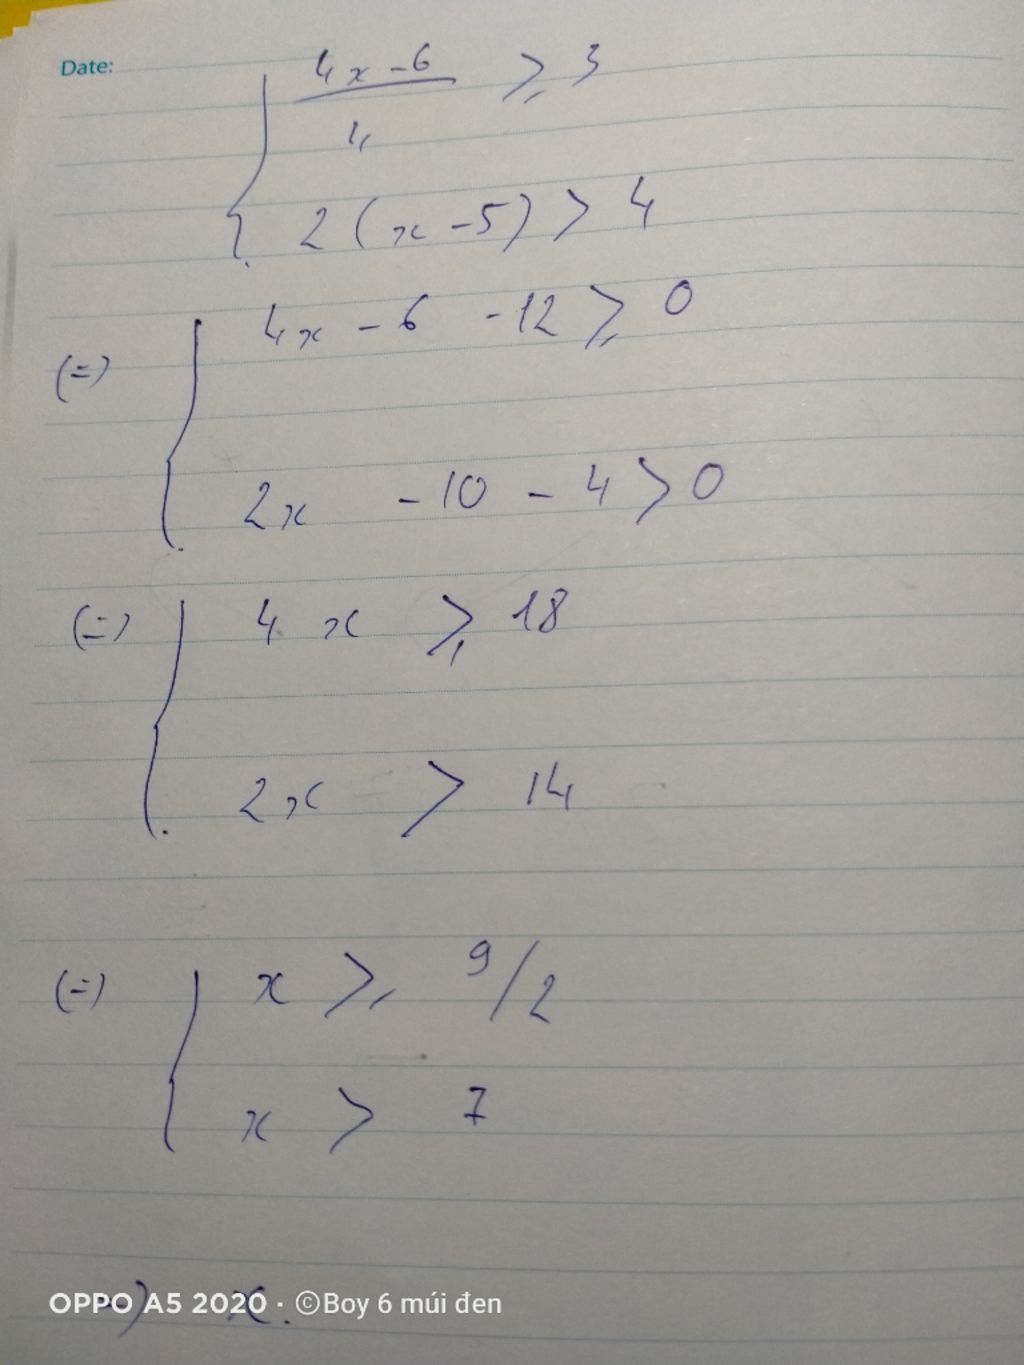 Date:
{ 4x - 6 / 4 ⩾ 3
2 (x - 5) > 4
(=) { 4x - 6 - 12 ⩾ 0
2x - 10 - 4 > 0
(=) { 4x ⩾ 18
2x > 14
(=) { x ⩾ 9/2
x > 7
x.
OPPO A5 2020 · ©Boy 6 múi đen